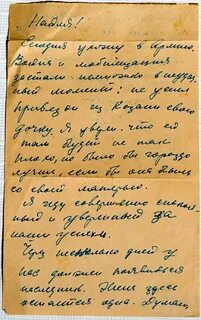 Надия!
Сегодня ухожу в Армию.
Война и мобилизация
застали немножко в неудач
ный момент: не успел
привезти из Казани свою
дочку. Я уверен, что ей
там будет не так
плохо, но было бы гораздо
лучше, если бы она была
со своей матерью.
Я иду совершенно спокой
ный и уверенный за
наши успехи.
Через несколько дней у
нас должен появиться
наследник. Женя здесь
останется одна. Думаю,